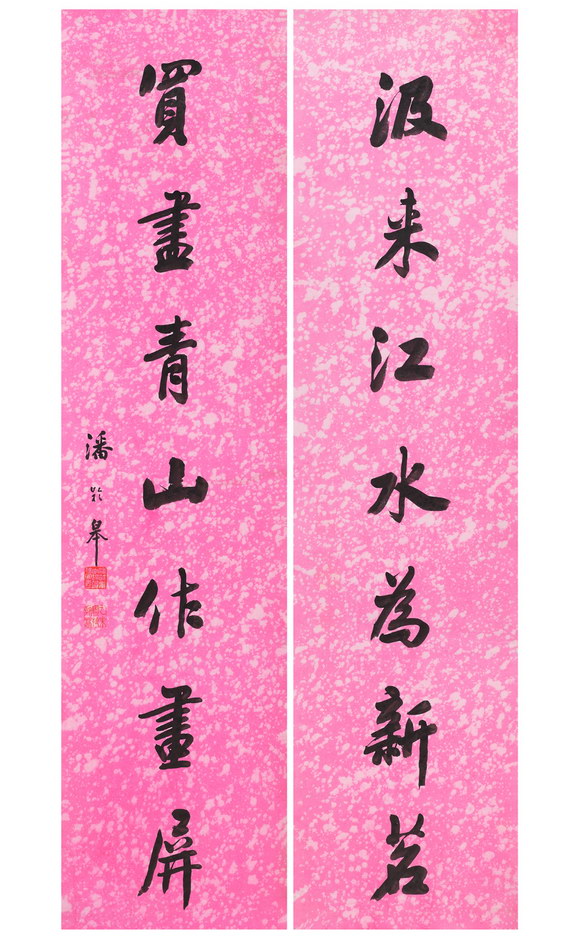 汲来江水為新茗
買盡青山作畫屏
潘齡皋